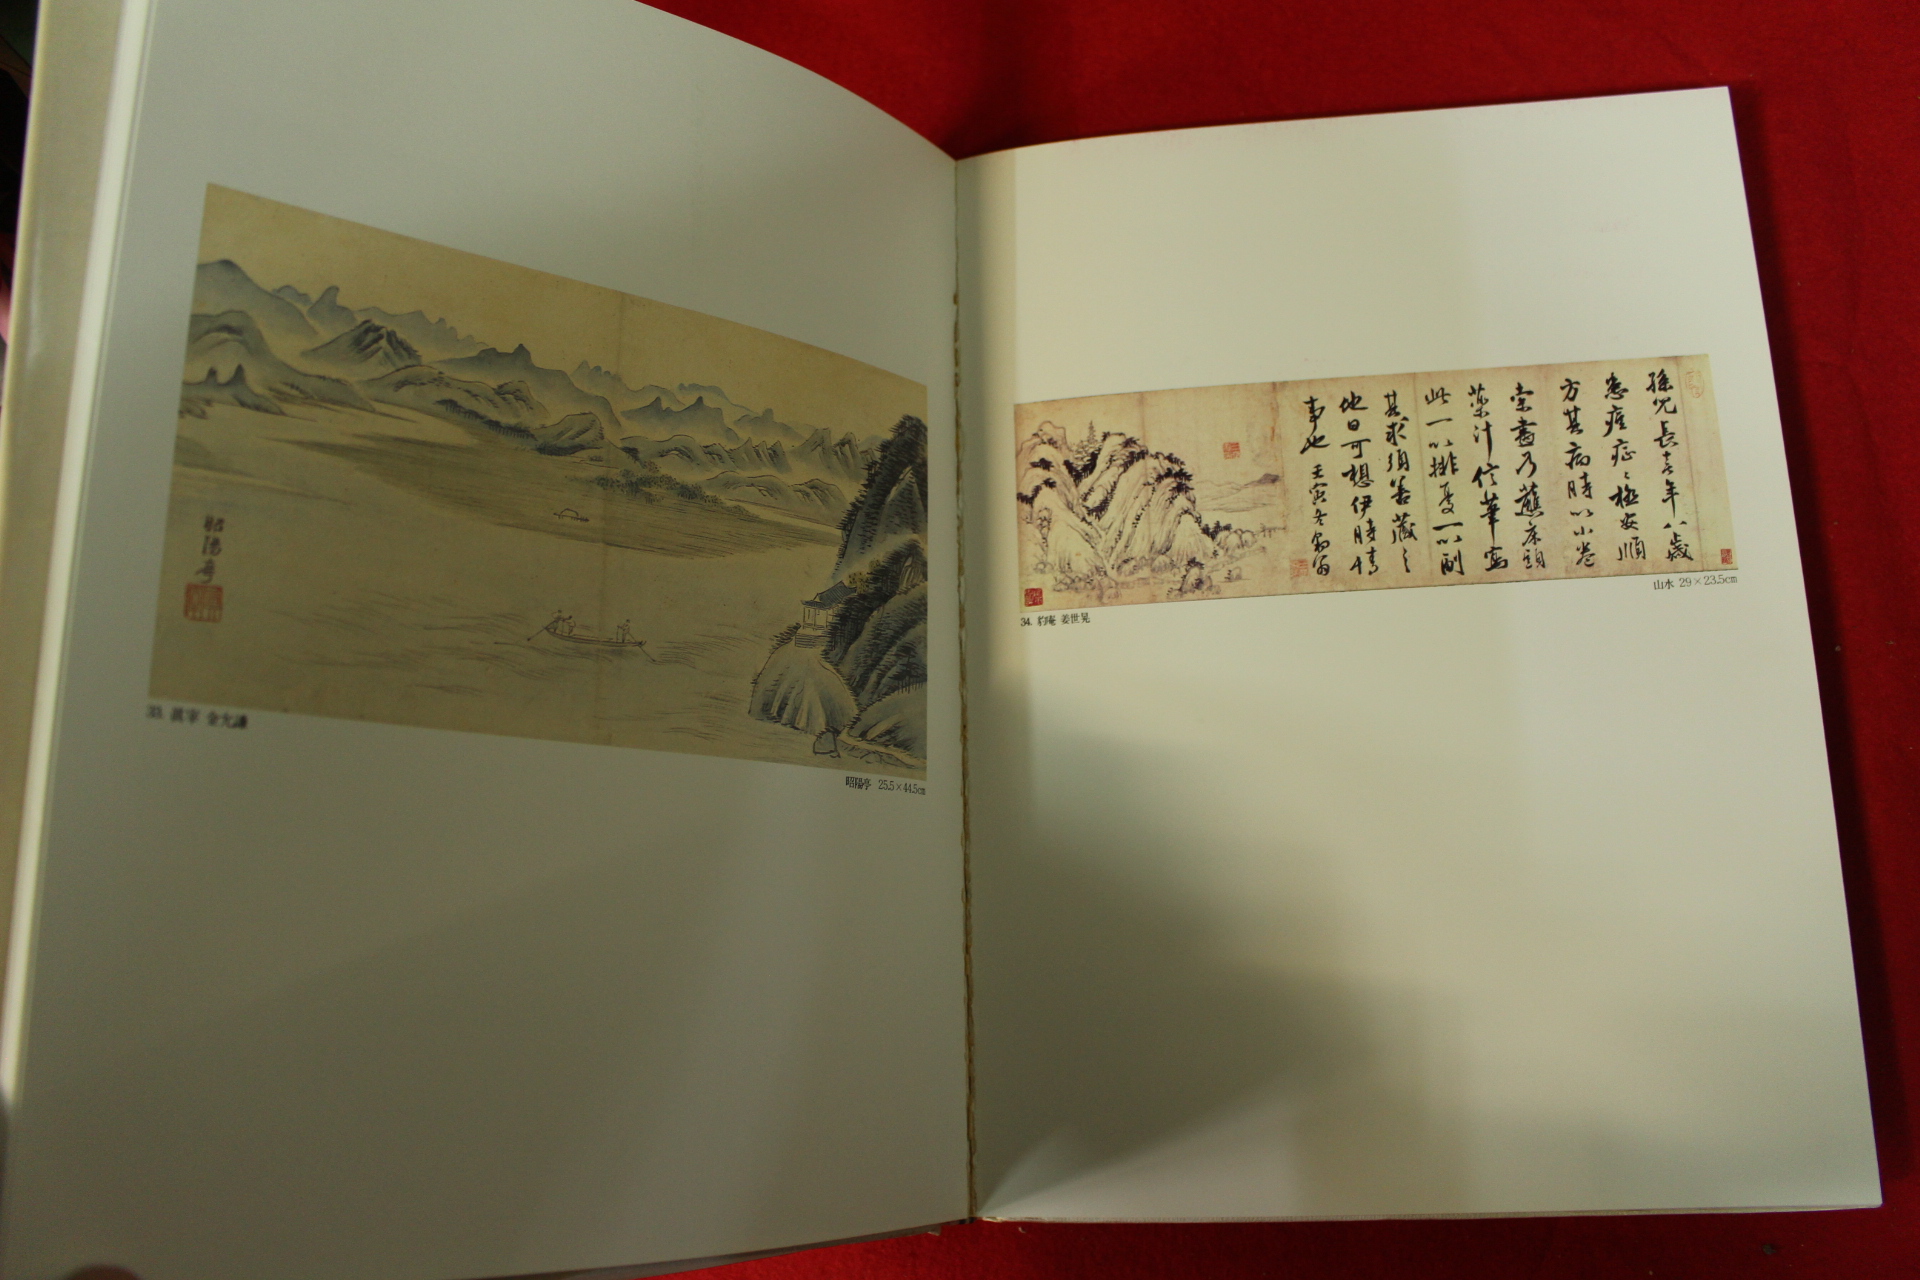 昭陽亭
33. 眞宰 金允謙
昭陽亭 25.5×44.5cm
孫兒長十六年八歲
患痘症症極安順
方其病時以小卷
索書乃蘸床頭
藥汁信筆寫
此一以排憂一以
其求須善藏之
他日可想伊時情
事也 壬寅冬
34. 豹庵 姜世晃
山水 29×23.5cm